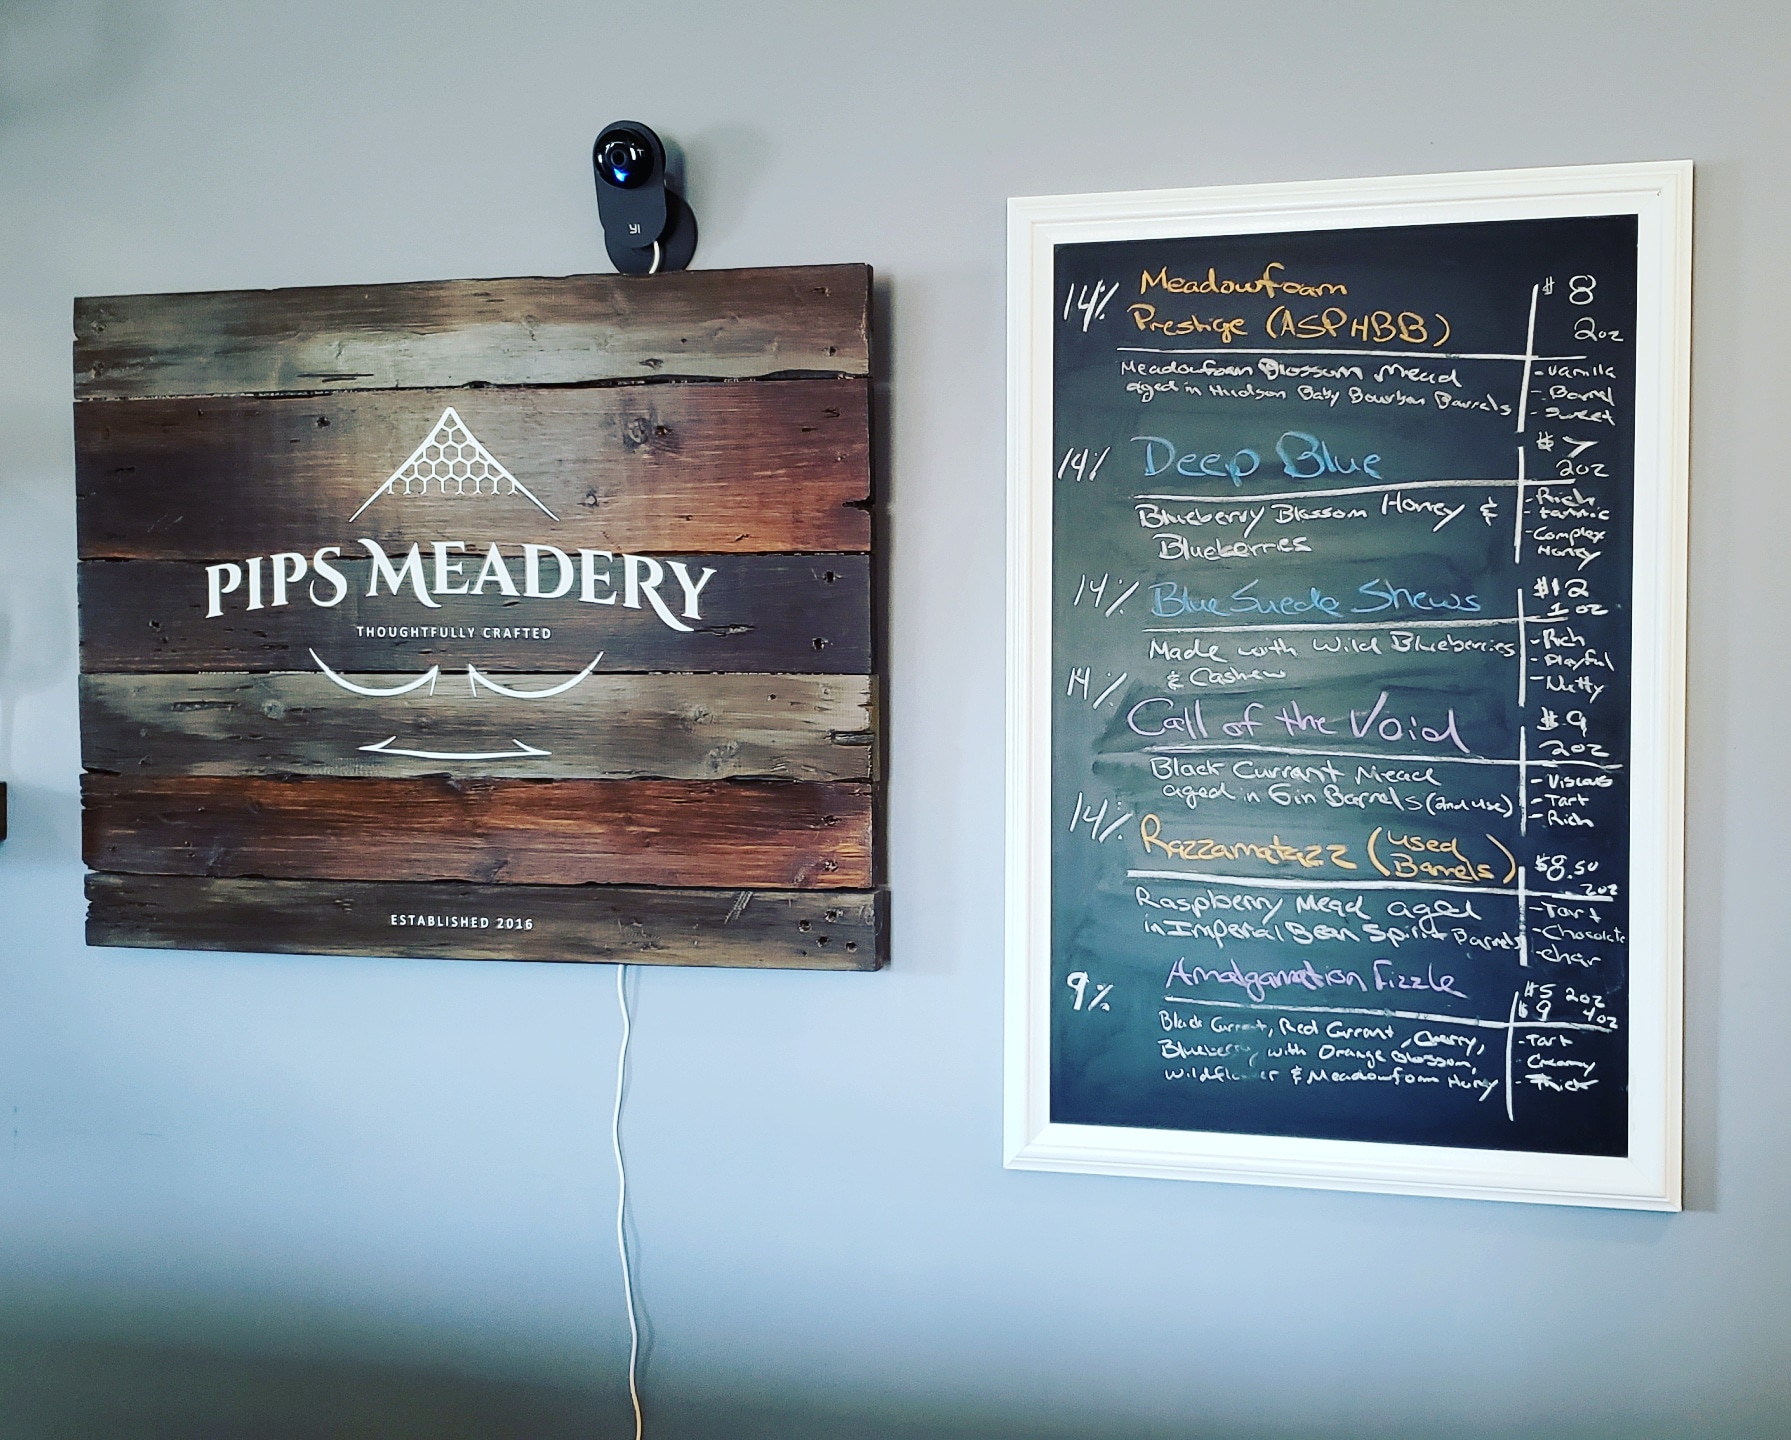 YI
PIPS MEADERY
THOUGHTFULLY CRAFTED
ESTABLISHED 2016
14% Meadowfoam $8
Prestige (ASPHBB) 2oz
Meadowfoam Blossom Mead
aged in Hudson Baby Bourbon Barrels
- Vanilla
- Barrel
- Sweet
14% Deep Blue $7
2oz
Blueberry Blossom Honey &
Blueberries
- Rich
- tannic
- Complex
Honey
14% Blue Suede Shews $12
1 oz
Made with Wild Blueberries
& Cashew
- Rich
- Playful
- Nutty
14% Call of the Void $9
2oz
Black Currant Mead
aged in Gin Barrels (2nd use)
- Viscous
- Tart
- Rich
14% Razzamatazz (used Barrels) $8.50
2oz
Raspberry Mead aged
in Imperial Bean Spirit Barrels
- Tart
- Chocolate
- Char
9% Amalgamation Fizzle $5 2oz
$9 4oz
Black Currant, Red Currant, Cherry,
Blueberry with Orange Blossom,
Wildflower & Meadowfoam Honey
- Tart
- Creamy
- Thick